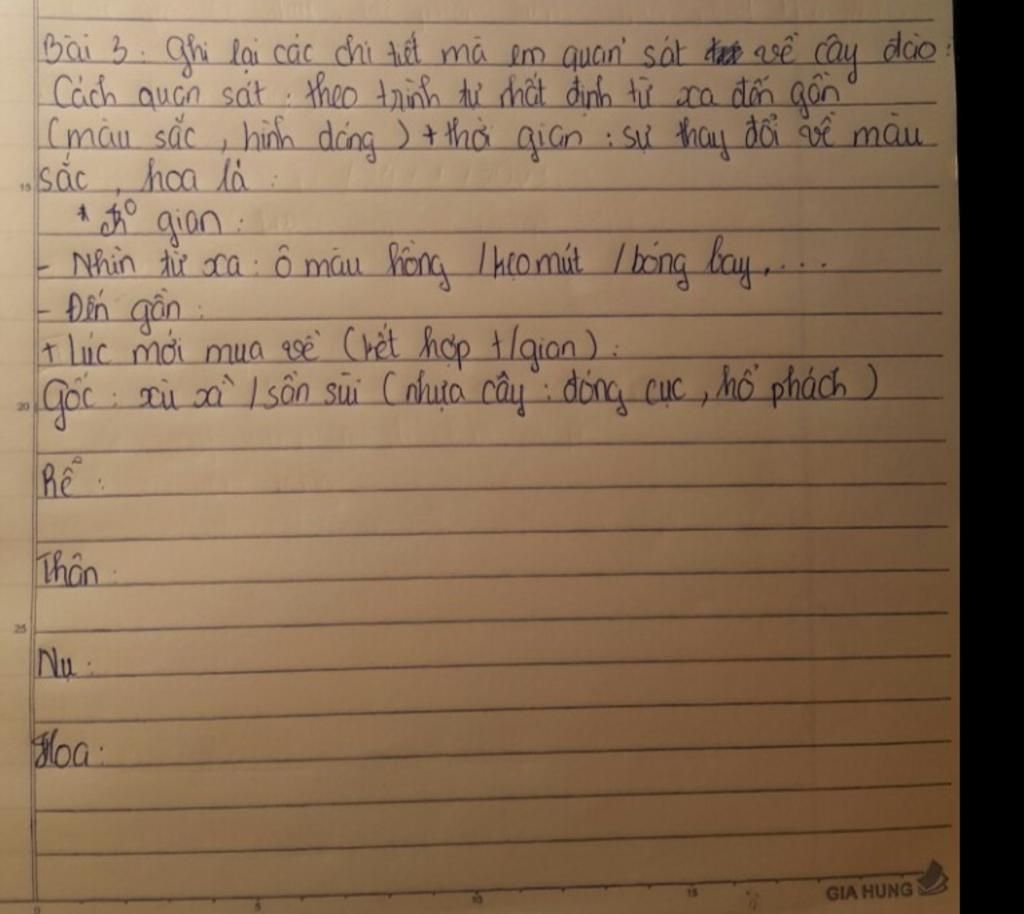 Bài 3: Ghi lại các chi tiết mà em quan sát về cây đào:
Cách quan sát: theo trình tự nhất định từ xa đến gần
(màu sắc, hình dáng) + thời gian: sự thay đổi về màu
15 sắc, hoa lá:
* ko gian:
- Nhìn từ xa: ô màu hồng / kẹo mút / bóng bay,...
- Đến gần:
+ Lúc mới mua về (kết hợp t/gian):
20 Gốc: xù xì / sần sùi (nhựa cây: đóng cục, hổ phách)
Rễ:
Thân:
25
Nụ:
Hoa:
GIA HUNG
0 5 10 15